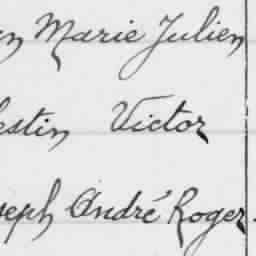 n Marie Julien
estin Victor
seph André Roger.